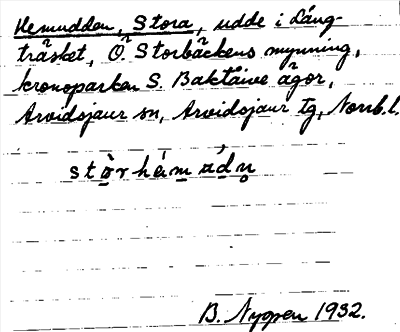 Hemudden, Stora, udde i Lång-
träsket, Ö. Storbäckens mynning,
kronoparken S. Baktåive ägor,
Arvidsjaur sn, Arvidsjaur tg, Norrb. l.
B. Nygren 1932.